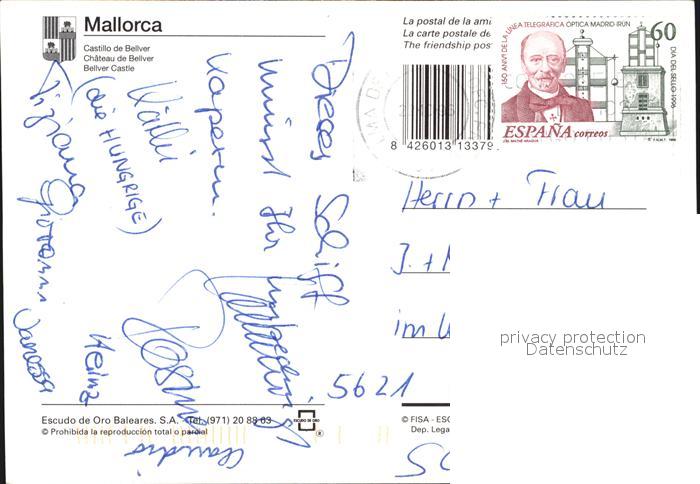 Mallorca
Castillo de Bellver
Château de Bellver
Bellver Castle
La postal de la ami
La carte postale de
The friendship pos
8 426013 13379
150 ANIV. DE LA LINEA TELEGRAFICA OPTICA MADRID-IRUN
60
DIA DEL SELLO-1996
ESPAÑA correos
F.N.M.T. 1996
Dieses Schiff
müsst Ihr unbedingt
kapern.
Walli
(die HUNGRIGE)
Tiziana Giovanni Vanessa
Heinz
Claudio
Herrn + Frau
J. +
im
5621
Escudo de Oro Baleares. S.A. - Tel. (971) 20 88 63
© Prohibida la reproducción total o parcial
ESCUDO DE ORO
®
© FISA - ESC
Dep. Lega
privacy protection
Datenschutz